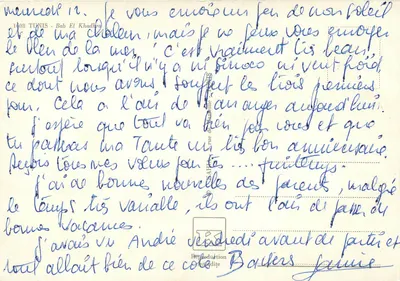 mercredi 12. Je vous envoie un peu de mon soleil
1088 TUNIS - Bab El Khadra
et de ma chaleur, mais je ne peux vous envoyer
le bleu de la mer. C'est vraiment très beau,
surtout lorsqu'il n'y a ni ni vent froid
ce dont nous avons souffert les trois premiers
jours. Cela a l'air de s'arranger aujourd'hui.
J'espère que tout va bien pour vous et que
tu passeras ma Tante un très bon anniversaire.
Reçois tous mes vœux pour tes .... printemps.
J'ai de bonnes nouvelles des parents, malgré
le temps très variable, ils ont l'air de passer de
bonnes vacances.
J'avais vu André vendredi avant de partir et
tout allait bien de ce côté. Baisers
Reproduction interdite